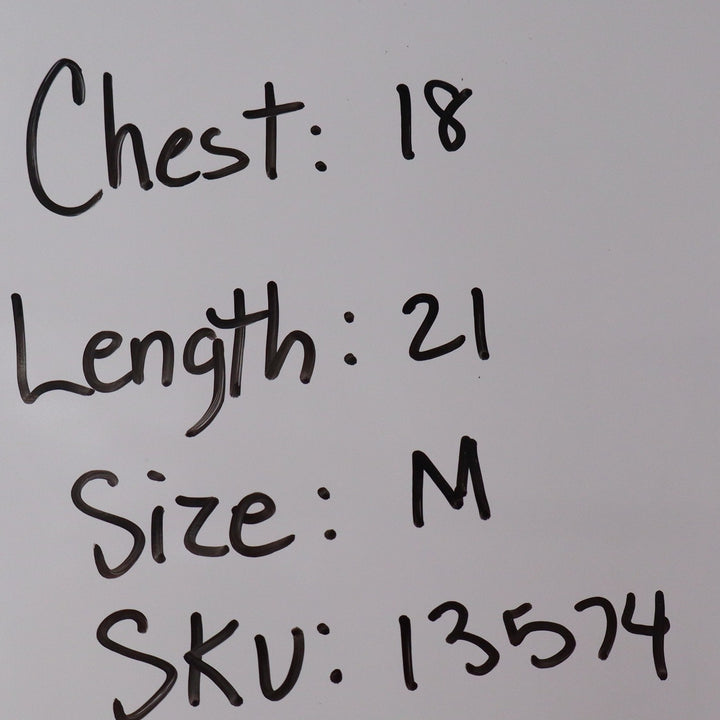 Chest: 18
Length: 21
Size: M
SKU: 13574